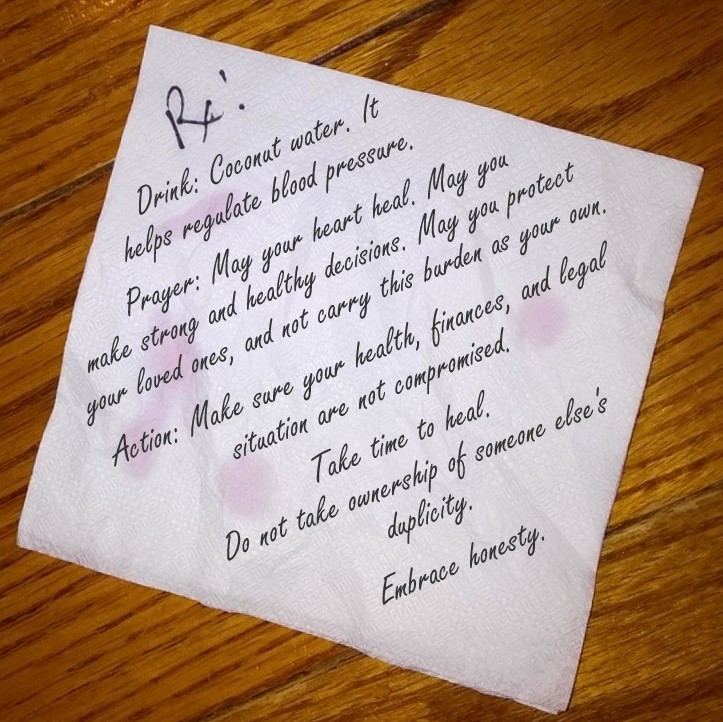 Rx:
Drink: Coconut water. It
helps regulate blood pressure.
Prayer: May your heart heal. May you
make strong and healthy decisions. May you protect
your loved ones, and not carry this burden as your own.
Action: Make sure your health, finances, and legal
situation are not compromised.
Take time to heal.
Do not take ownership of someone else's
duplicity.
Embrace honesty.